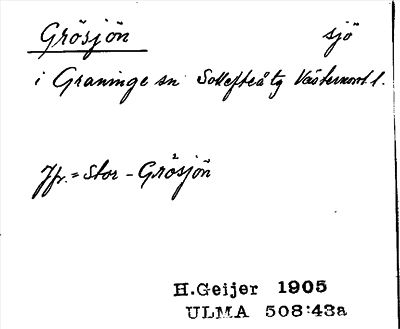 Grösjön sjö
i Graninge sn Sollefteå tg Västernorrl.
Jfr. = Stor-Grösjön
H.Geijer 1905
ULMA 508:43a